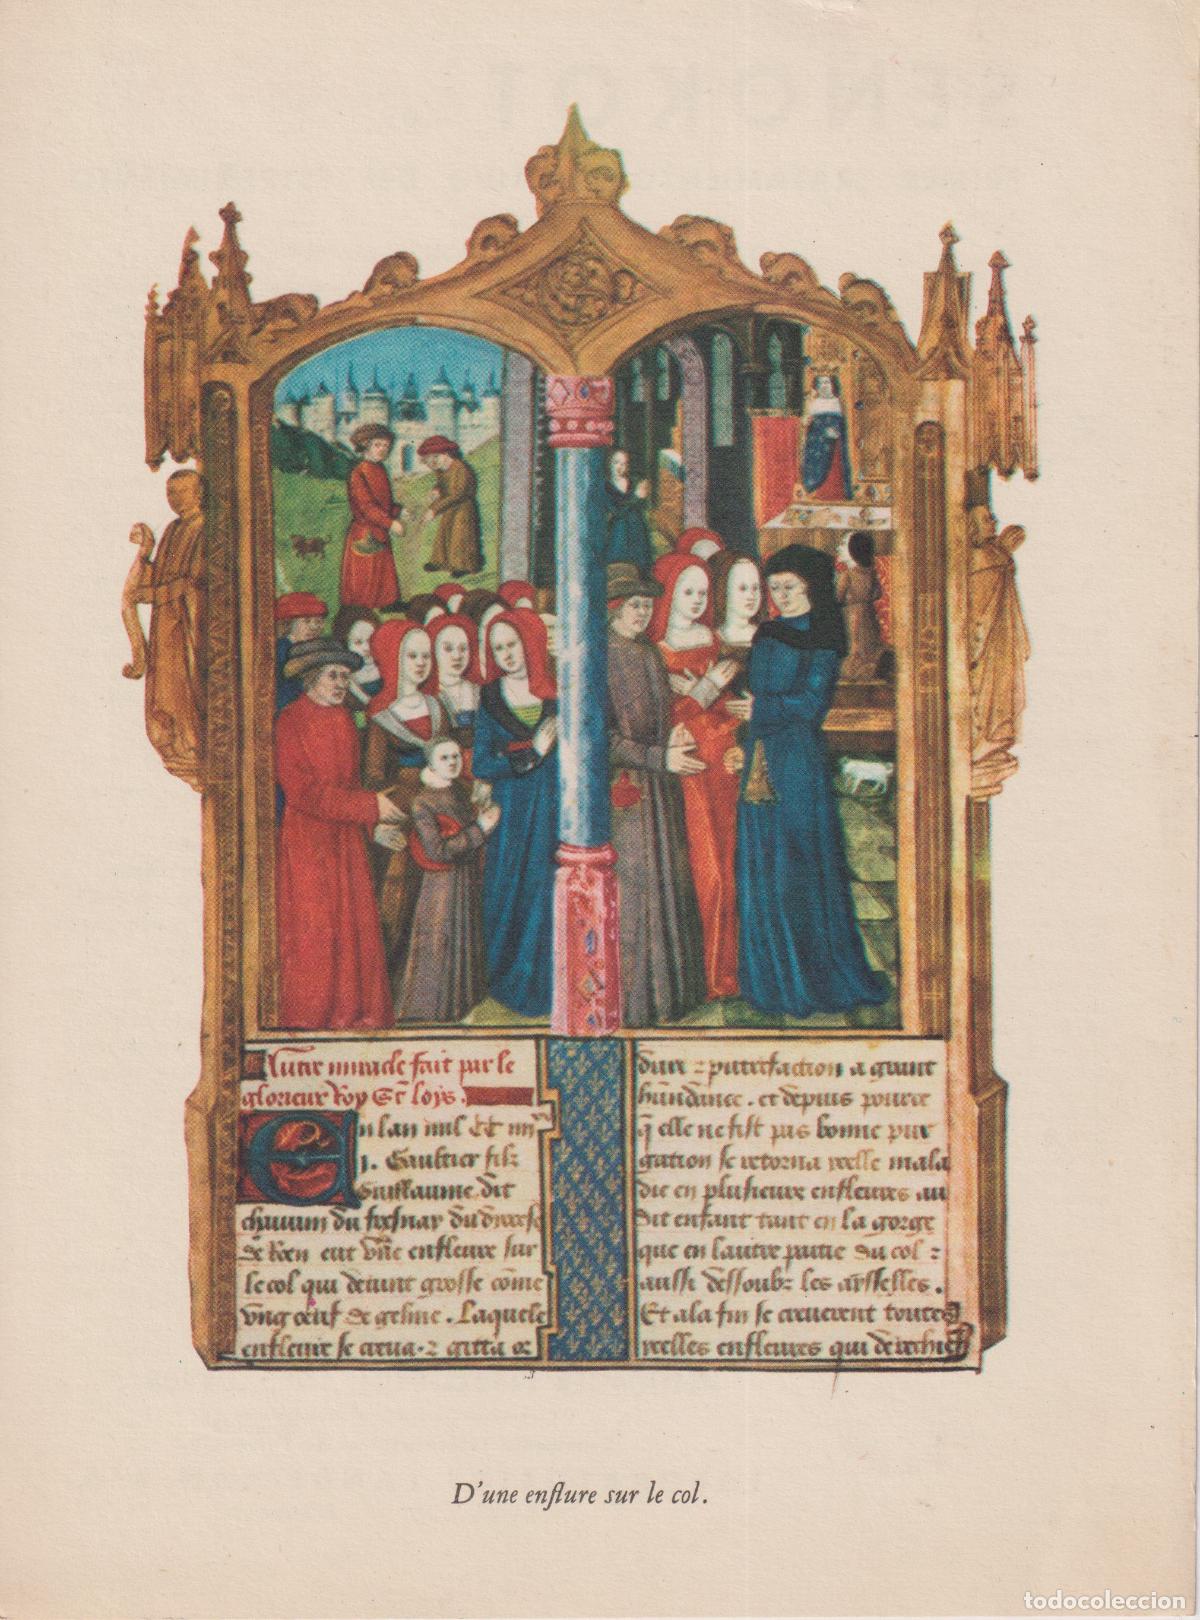 Autre miracle fait par le
glorieux Roy St loys.
En lan mil CC iiii
i. Gaultier filz
Guillaume dit
chauuin du fresnay du diocese
de Roen eut vne enfleure sur
le col qui deuint grosse cōme
vng oeuf de geline. Laquele
enfleure se creua. z gitta or
dure z putrefaction a grant
hūndance. et depuis pource
q̄ elle ne fist pas bonne pur
gation se retorna icelle mala
die en plusieurs enfleures au
dit enfant tant en la gorge
que en lautre partie du col z
aussi dessoubz les aysselles.
Et ala fin se creuerent toutes
icelles enfleures qui derechief
D'une enflure sur le col.
todocoleccion